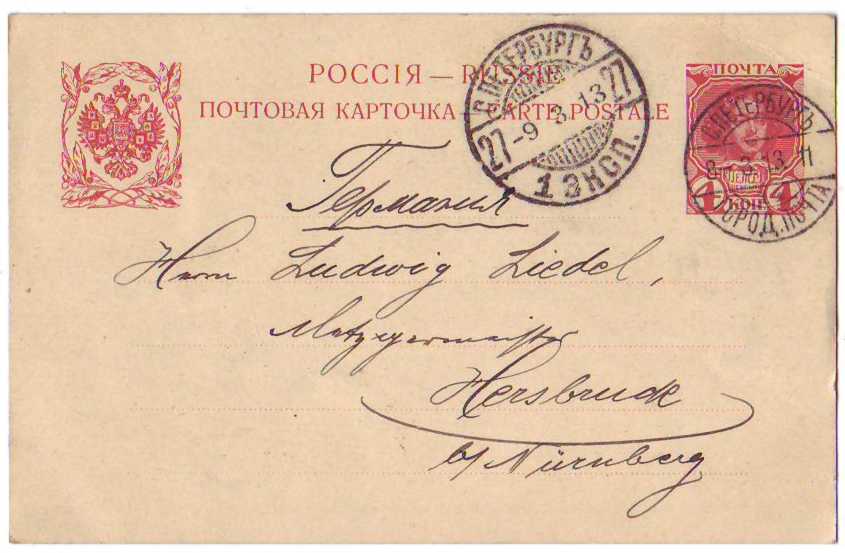 РОССІЯ — RUSSIE
ПОЧТОВАЯ КАРТОЧКА — CARTE POSTALE
ПОЧТА
4 КОП. 4
С.ПЕТЕРБУРГЪ
27 -9 3.13 27
1 ЭКСП.
С.ПЕТЕРБУРГЪ
8 3.13 11
ГОРОД.ПОЧТА
Германия
Herrn Ludwig Liedel,
Metzgermeister
Hersbruck
b/ Nürnberg